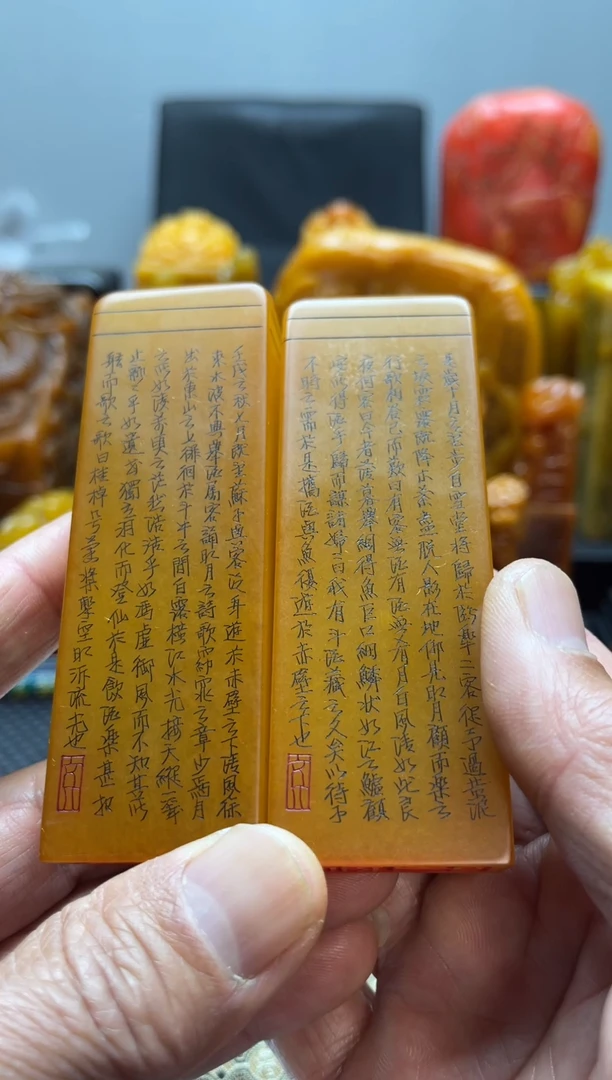 壬戌之秋七月既望蘇子與客泛舟遊於赤壁之下清風徐
來水波不興舉酒屬客誦明月之詩歌窈窕之章少焉月
出於東山之上徘徊於斗牛之間白露橫江水光接天縱一葦
之所如凌萬頃之茫然浩浩乎如馮虛御風而不知其所
止飄飄乎如遺世獨立羽化而登仙於是飲酒樂甚扣
舷而歌之歌曰桂棹兮蘭槳擊空明泝流光也
是歲十月之望步自雪堂將歸於臨皋二客從予過黃泥
之坂霜露既降木葉盡脫人影在地仰見明月顧而樂之
行歌相答已而歎曰有客無酒有酒無肴月白風清如此良
夜何客曰今者薄暮舉網得魚巨口細鱗狀如江之鱸顧
安所得酒乎歸而謀諸婦婦曰我有斗酒藏之久矣以待子
不時之需於是攜酒與魚復遊於赤壁之下也